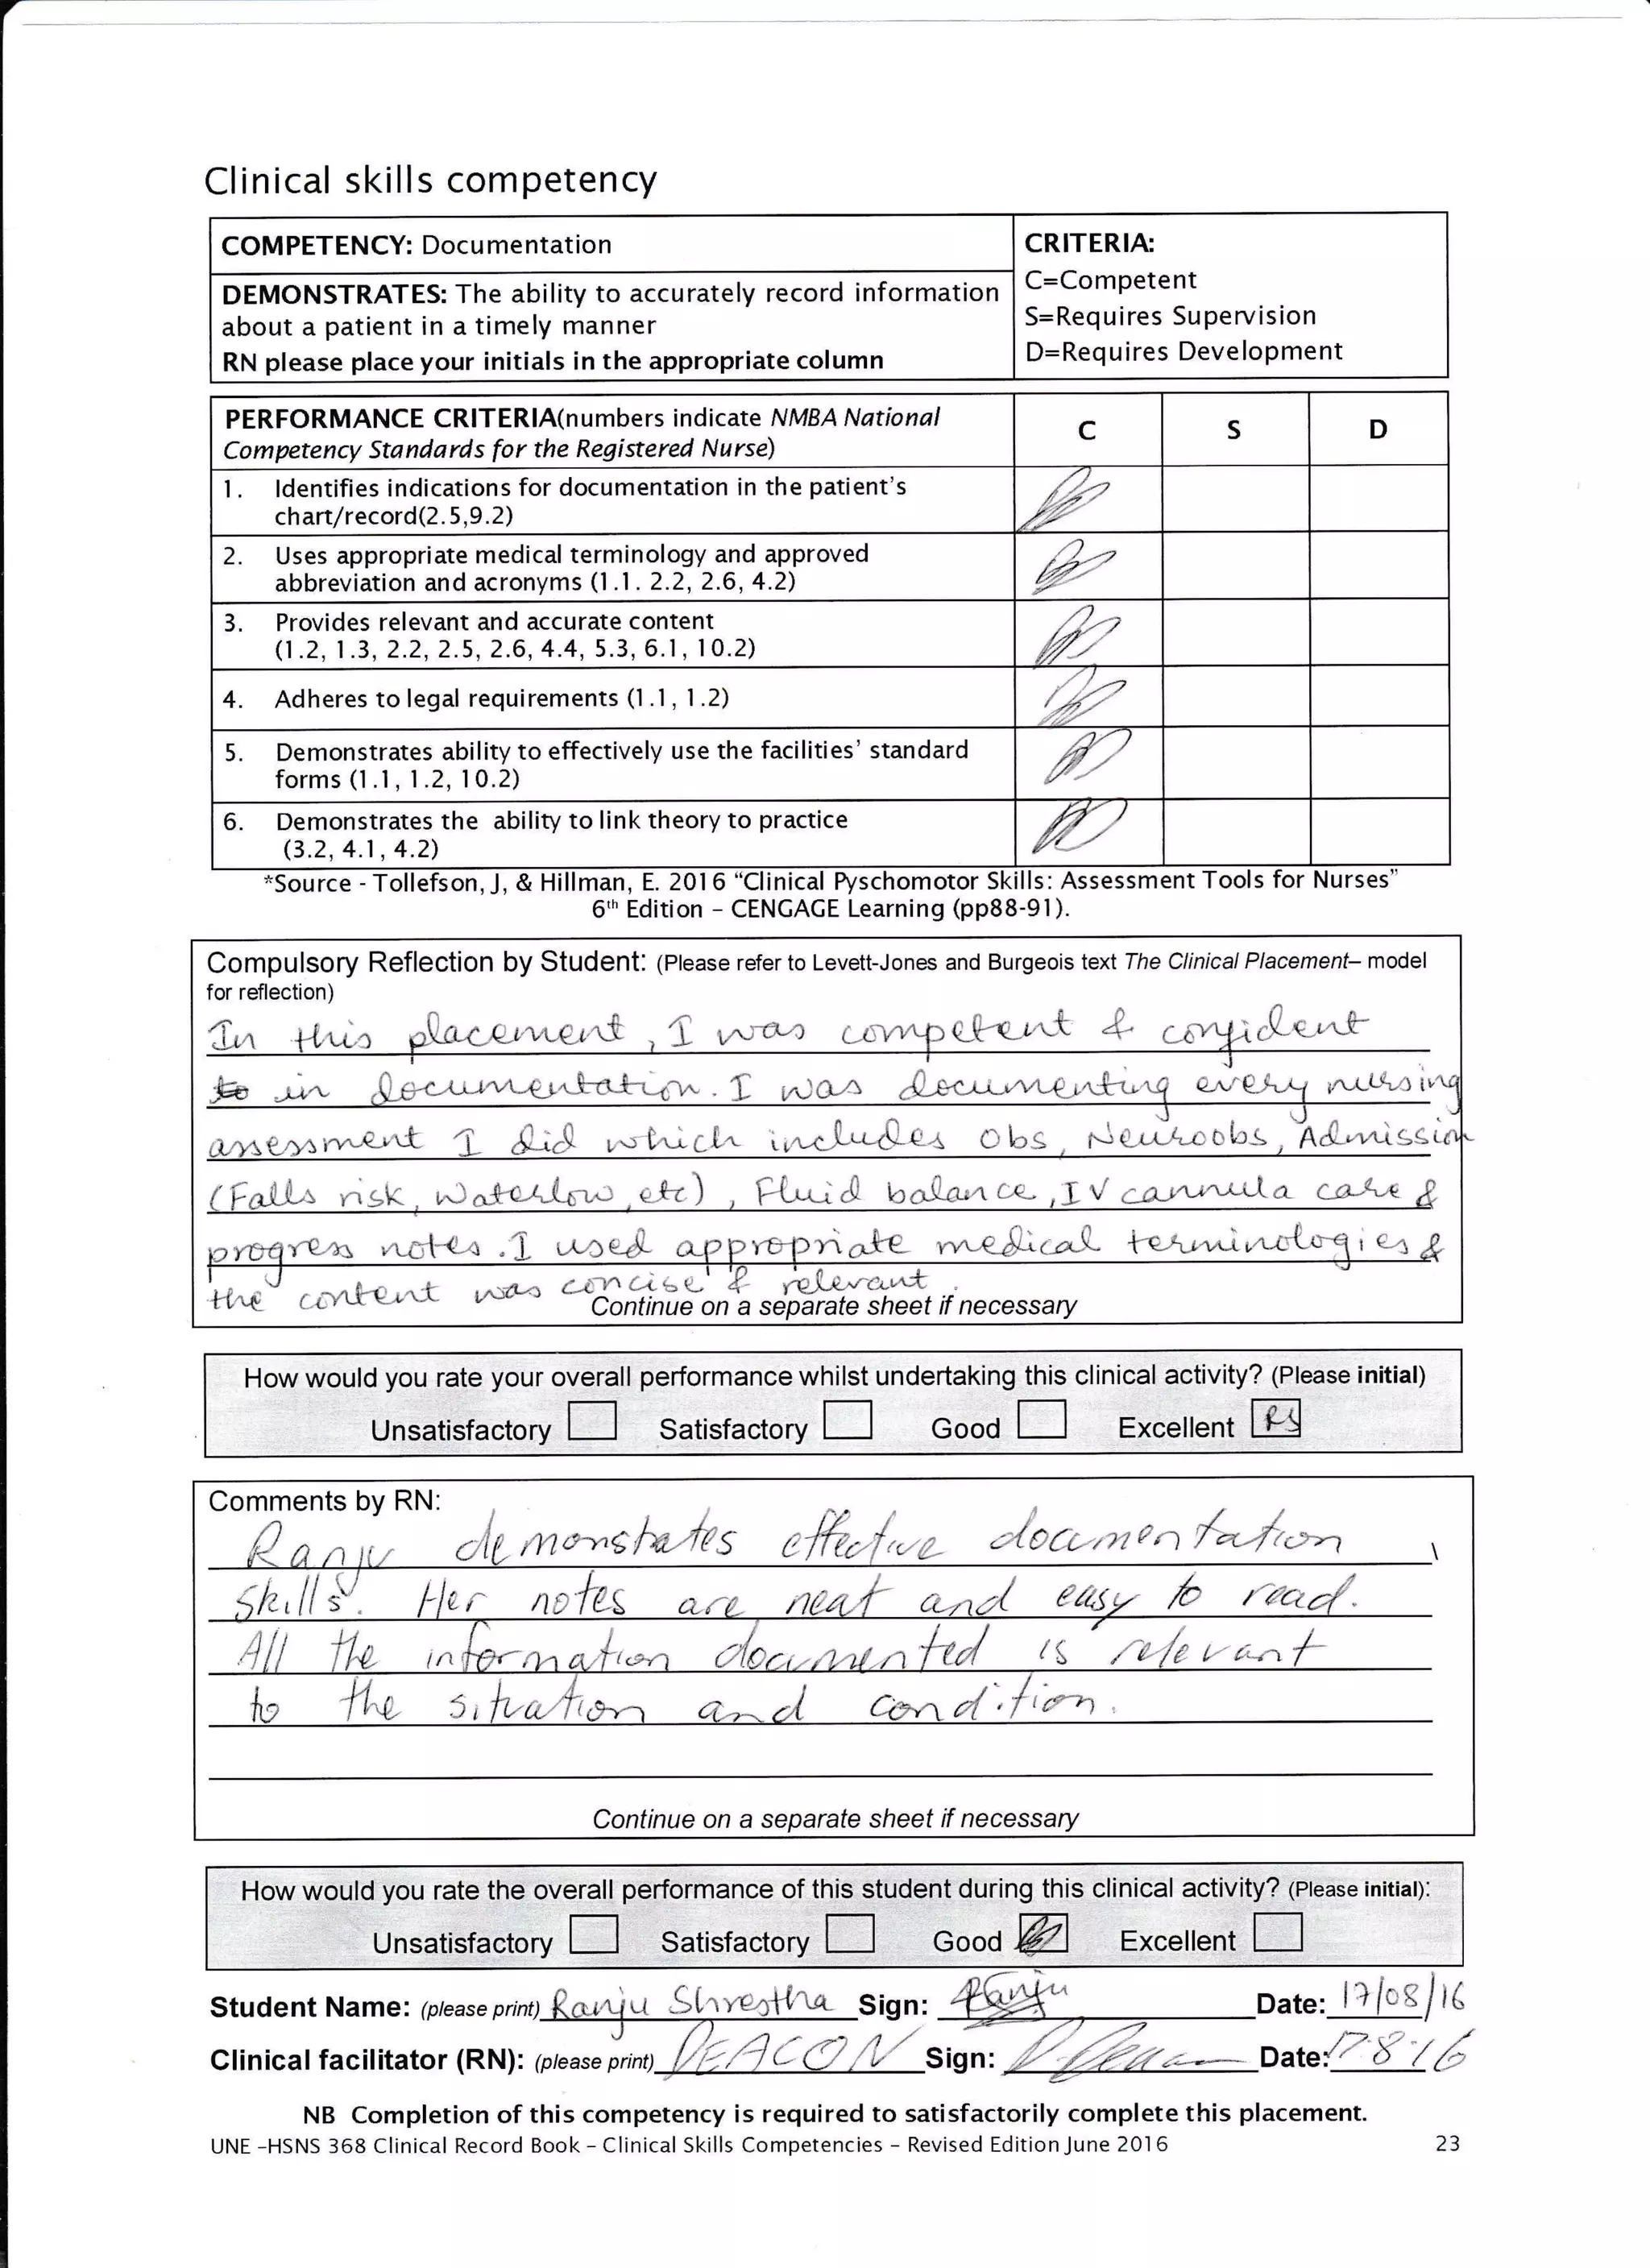 Clinical skills competency
COMPETENCY: Documentation
DEMONSTRATES: The ability to accurately record information
about a patient in a timely manner
RN please place your initials in the appropriate column
CRITERIA:
C=Competent
S=Requires Supervision
D=Requires Development
PERFORMANCE CRITERIA(numbers indicate NMBA National
Competency Standards for the Registered Nurse)
C S D
1. Identifies indications for documentation in the patient's
chart/record(2.5,9.2)
2. Uses appropriate medical terminology and approved
abbreviation and acronyms (1.1. 2.2, 2.6, 4.2)
3. Provides relevant and accurate content
(1.2, 1.3, 2.2, 2.5, 2.6, 4.4, 5.3, 6.1, 10.2)
4. Adheres to legal requirements (1.1, 1.2)
5. Demonstrates ability to effectively use the facilities' standard
forms (1.1, 1.2, 10.2)
6. Demonstrates the ability to link theory to practice
(3.2, 4.1, 4.2)
*Source - Tollefson, J, & Hillman, E. 2016 “Clinical Pyschomotor Skills: Assessment Tools for Nurses”
6th Edition – CENGAGE Learning (pp88-91).
Compulsory Reflection by Student: (Please refer to Levett-Jones and Burgeois text The Clinical Placement– model
for reflection)
In this placement, I was competent & confident
to in documentation. I was documenting every nursing
assessment I did which includes obs, Neuroobs, Admission
(Falls risk, Waterlow, etc), Fluid balance, IV cannula care &
progress notes. I used appropriate medical terminologies &
the content was concise & relevant.
Continue on a separate sheet if necessary
How would you rate your overall performance whilst undertaking this clinical activity? (Please initial)
Unsatisfactory Satisfactory Good Excellent RS
Comments by RN:
Ranju demonstrates effective documentation
skills. Her notes are neat and easy to read.
All the information documented is relevant
to the situation and condition.
Continue on a separate sheet if necessary
How would you rate the overall performance of this student during this clinical activity? (Please initial):
Unsatisfactory Satisfactory Good Excellent
Student Name: (please print) Ranju Shrestha Sign: Ranju Date: 17/08/16
Clinical facilitator (RN): (please print) DEACON Sign: Date: 17.8.16
NB Completion of this competency is required to satisfactorily complete this placement.
UNE –HSNS 368 Clinical Record Book – Clinical Skills Competencies – Revised Edition June 2016 23